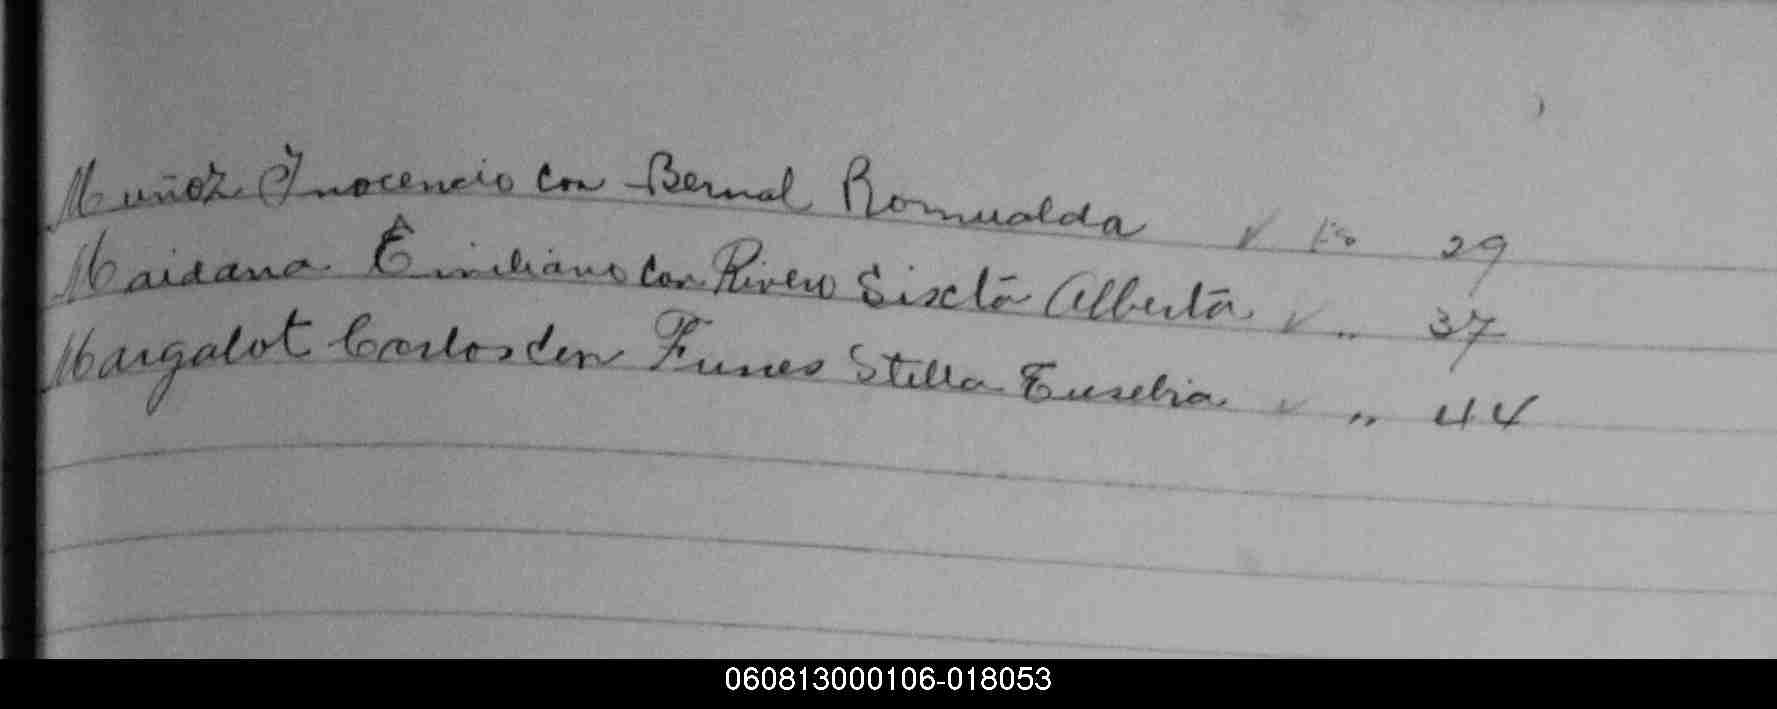 Muñoz Inocencio con Bernal Romualda ✓ Fo 29
Maidana Emiliano con Rivero Sixta Alberta ✓ " 37
Margalot Carlos con Funes Stella Eusebia ✓ " 44
060813000106-018053